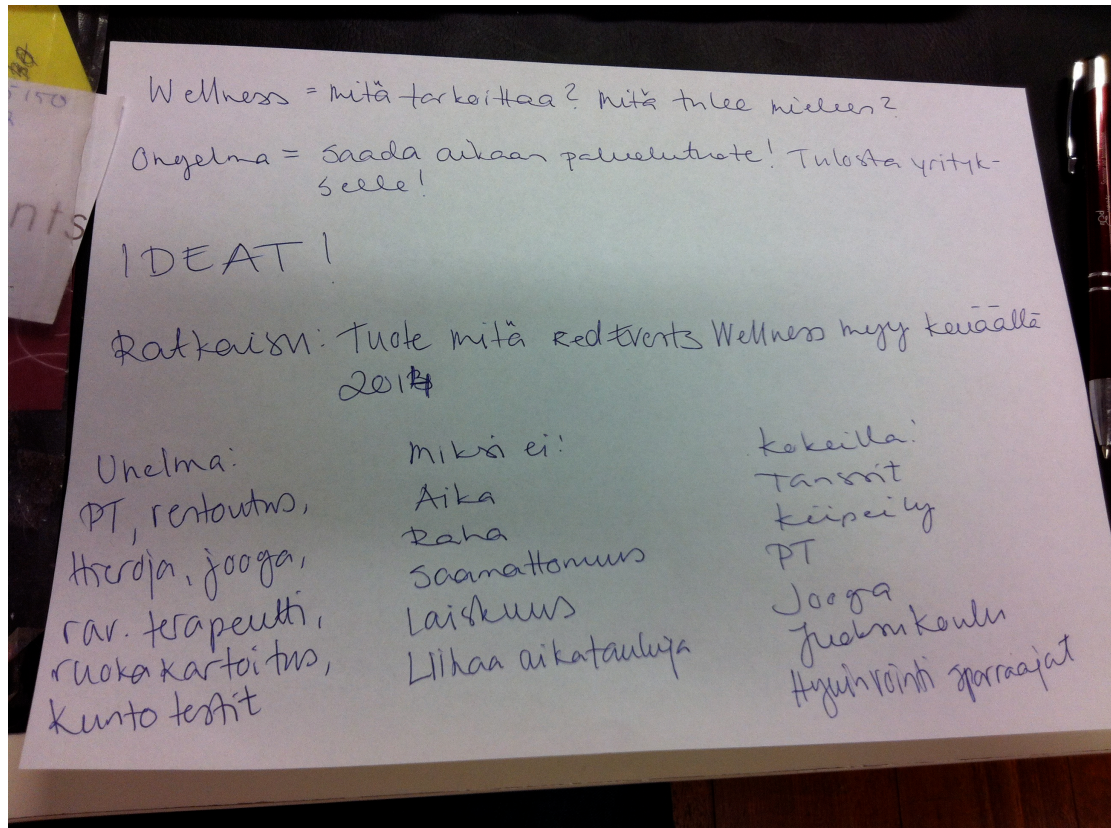 Wellness = mitä tarkoittaa? Mitä tulee mieleen?
Ongelma = saada aikaan palvelutuote! Tulosta yrityk-
selle!
IDEAT!
Ratkaisu: Tuote mitä RedEvents Wellness myy keväällä
2014
Unelma:
PT, rentoutus,
Hieroja, jooga,
rav. terapeutti,
ruokakartoitus,
Kunto testit
Miksi ei:
Aika
Raha
Saamattomuus
Laiskuus
Liikaa aikatauluja
Kokeilla:
Tanssit
Kiipeily
PT
Jooga
Juoksukoulu
Hyvinvointi sparraajat
5150
nts